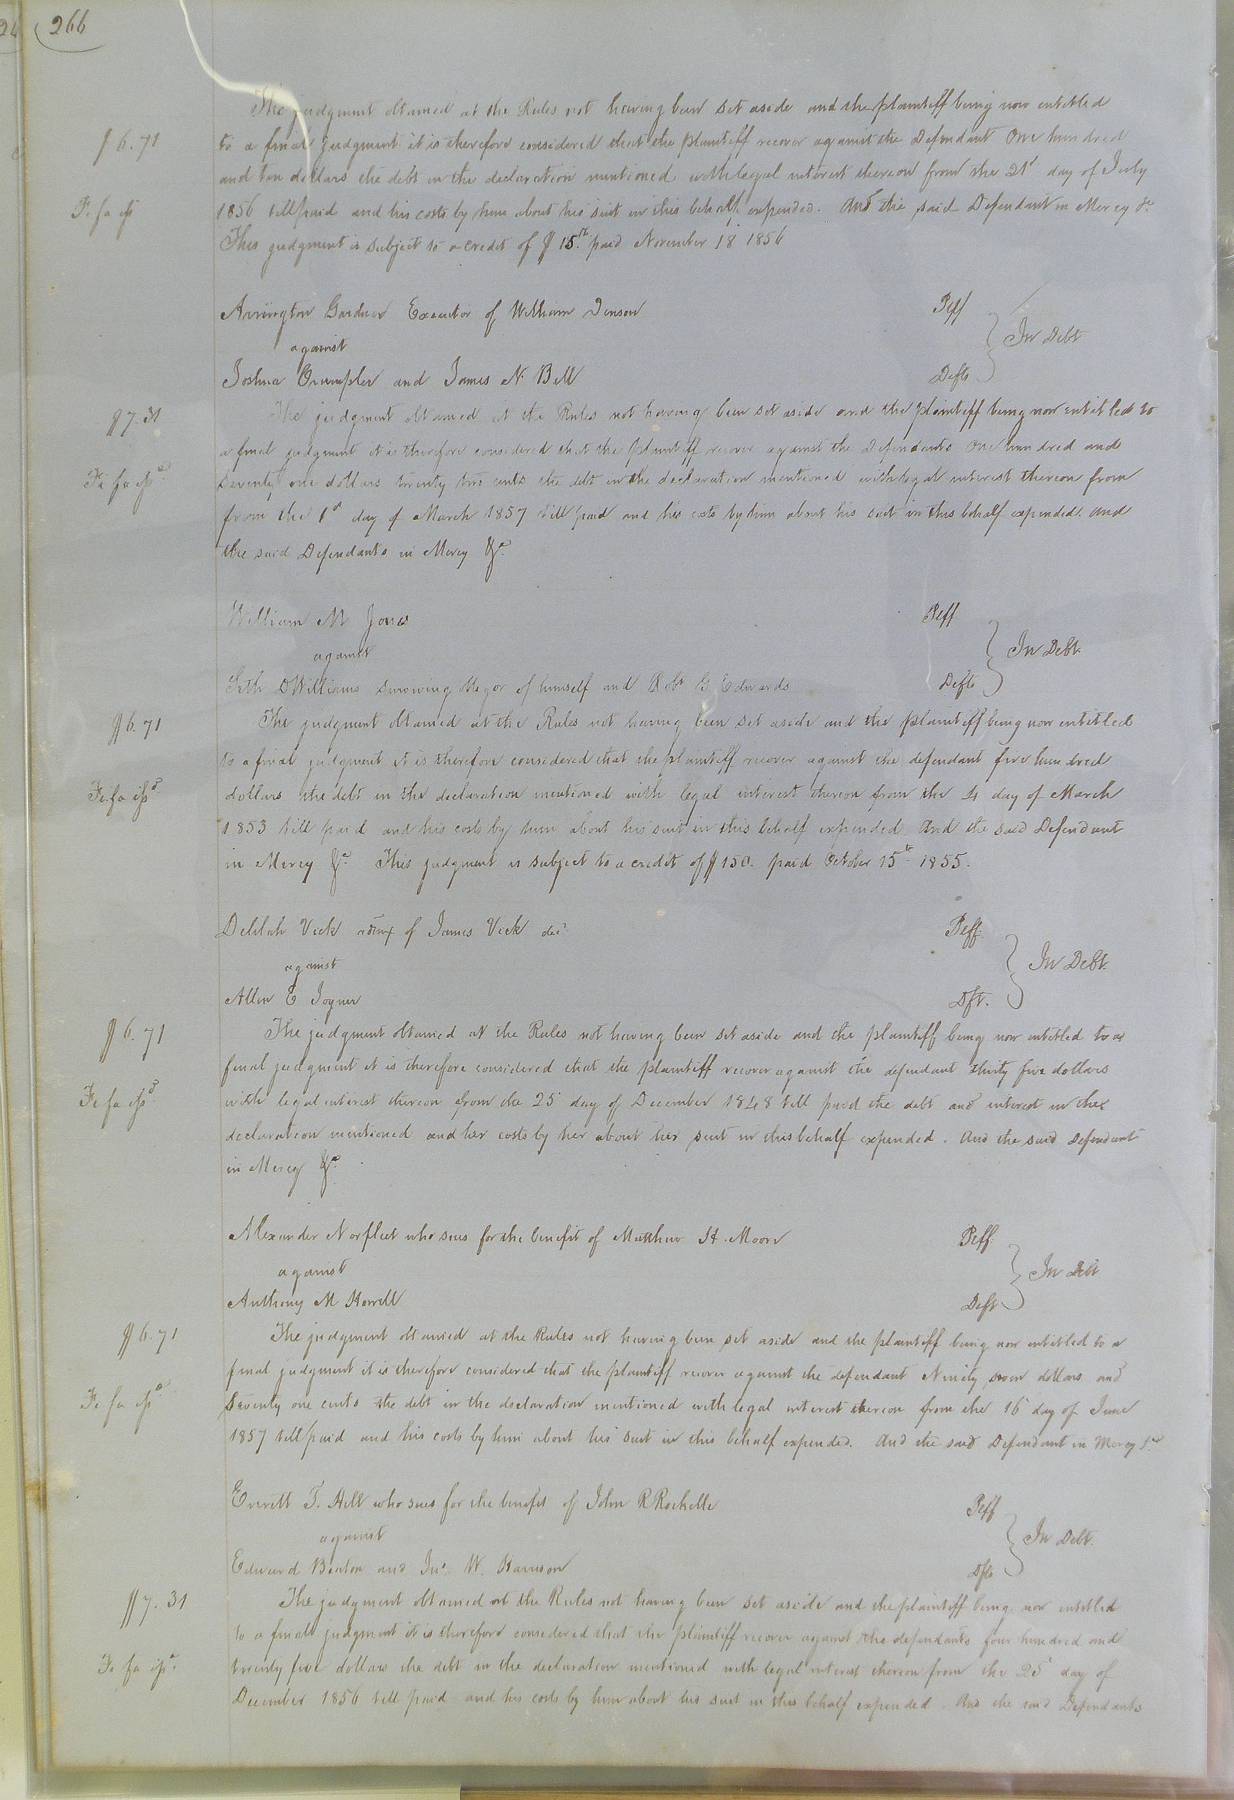 266
The judgment obtained at the Rules not having been set aside and the plaintiff being now entitled
$6.71
to a final judgment it is therefore considered that the plaintiff recover against the Defendant One hundred
and ten dollars the debt in the declaration mentioned with legal interest thereon from the 21st day of July
Fi fa
1856 till paid and his costs by him about his suit in this behalf expended. And the said Defendant in Mercy &c.
This judgment is subject to a credit of $15. paid November 18 1856
Arrington Gardner Executor of William Denson Pltff
against In Debt
Joshua Crumpler and James N Bell Defts
The judgment obtained at the Rules not having been set aside and the plaintiff being now entitled to
$7.31
a final judgment it is therefore considered that the plaintiff recover against the Defendants One hundred and
Fi fa issd
seventy one dollars twenty two cents the debt in the declaration mentioned with legal interest thereon from
from the 1st day of March 1857 till paid and his costs by him about his suit in this behalf expended. And
the said Defendants in Mercy &c.
William M Jones Pltff
against In Debt
Seth D Williams surviving of himself and Robt G Edwards Defts
The judgment obtained at the Rules not having been set aside and the plaintiff being now entitled
$6.71
to a final judgment it is therefore considered that the plaintiff recover against the defendant five hundred
Fi fa issd
dollars the debt in the declaration mentioned with legal interest thereon from the 4 day of March
1853 till paid and his costs by him about his suit in this behalf expended And the said Defendant
in Mercy &c. This judgment is subject to a credit of $150. paid October 15th 1855.
Delilah Vick admx of James Vick dec. Pltff
against In Debt.
Allen E Joyner Dft.
The judgment obtained at the Rules not having been set aside and the plaintiff being now entitled to a
$6.71
final judgment it is therefore considered that the plaintiff recover against the defendant thirty five dollars
Fi fa issd
with legal interest thereon from the 25 day of December 1848 till paid the debt and interest in the
declaration mentioned and her costs by her about her suit in this behalf expended. And the said Defendant
in Mercy &c.
Alexander Norfleet who sues for the benefit of Matthew H. Moore Pltff
against In Debt
Anthony M Howell Deft
The judgment obtained at the Rules not having been set aside and the plaintiff being now entitled to a
$6.71
final judgment it is therefore considered that the plaintiff recover against the defendant Ninety seven dollars and
Fi fa issd
Seventy one cents the debt in the declaration mentioned with legal interest thereon from the 16 day of June
1857 till paid and his costs by him about his suit in this behalf expended. And the said Defendant in Mercy &c
Everett T. Hill who sues for the benefit of John R Rochelle Pltff
against In Debt.
Edward Beaton and Jno. W. Harrison Dfts
The judgment obtained at the Rules not having been set aside and the plaintiff being now entitled
$7.31
to a final judgment it is therefore considered that the plaintiff recover against the defendants four hundred and
Fi fa issd.
twenty five dollars the debt in the declaration mentioned with legal interest thereon from the 25 day of
December 1856 till paid and his costs by him about his suit in this behalf expended. And the said Defendants